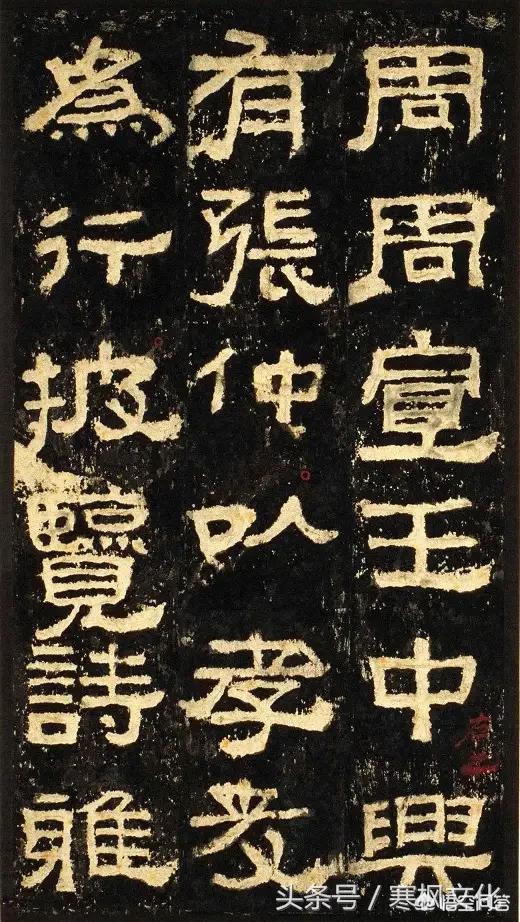 周周宣王中興
有張仲以孝友
為行披覽詩雅
头条号 / 寒枫文化
悟空问答